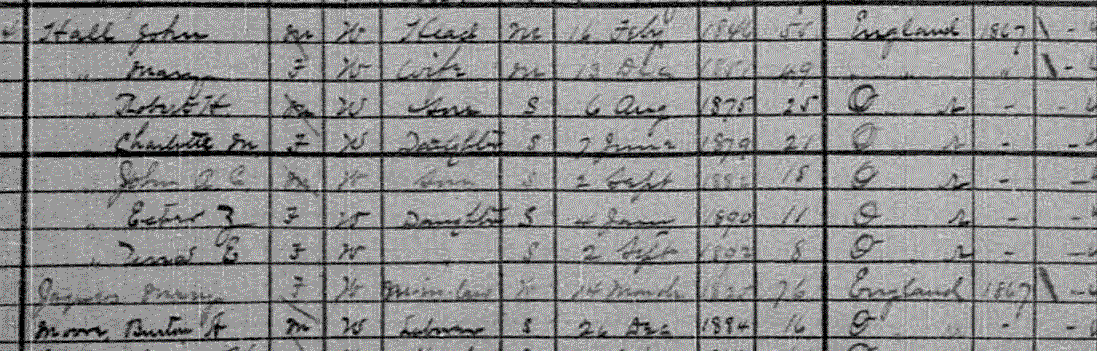 Hall John m W Head m 16 Feby 1846 55 England 1867
" Mary F W Wife m 13 Dec 1851 49 " " "
" Robert H. m W Son S 6 Aug 1875 25 O r -
" Charlotte M F W Daughter S 7 June 1879 21 O r -
" John A C m W Son S 2 Sept 1882 18 O r -
" F W Daughter S 4 Jany 1890 11 O r -
" E F W " S 2 Sept 1892 8 O r -
Jaques Mary F W 14 March 76 England 1867
Moore, Burton H m W S 26 Dec 1884 16 O r -